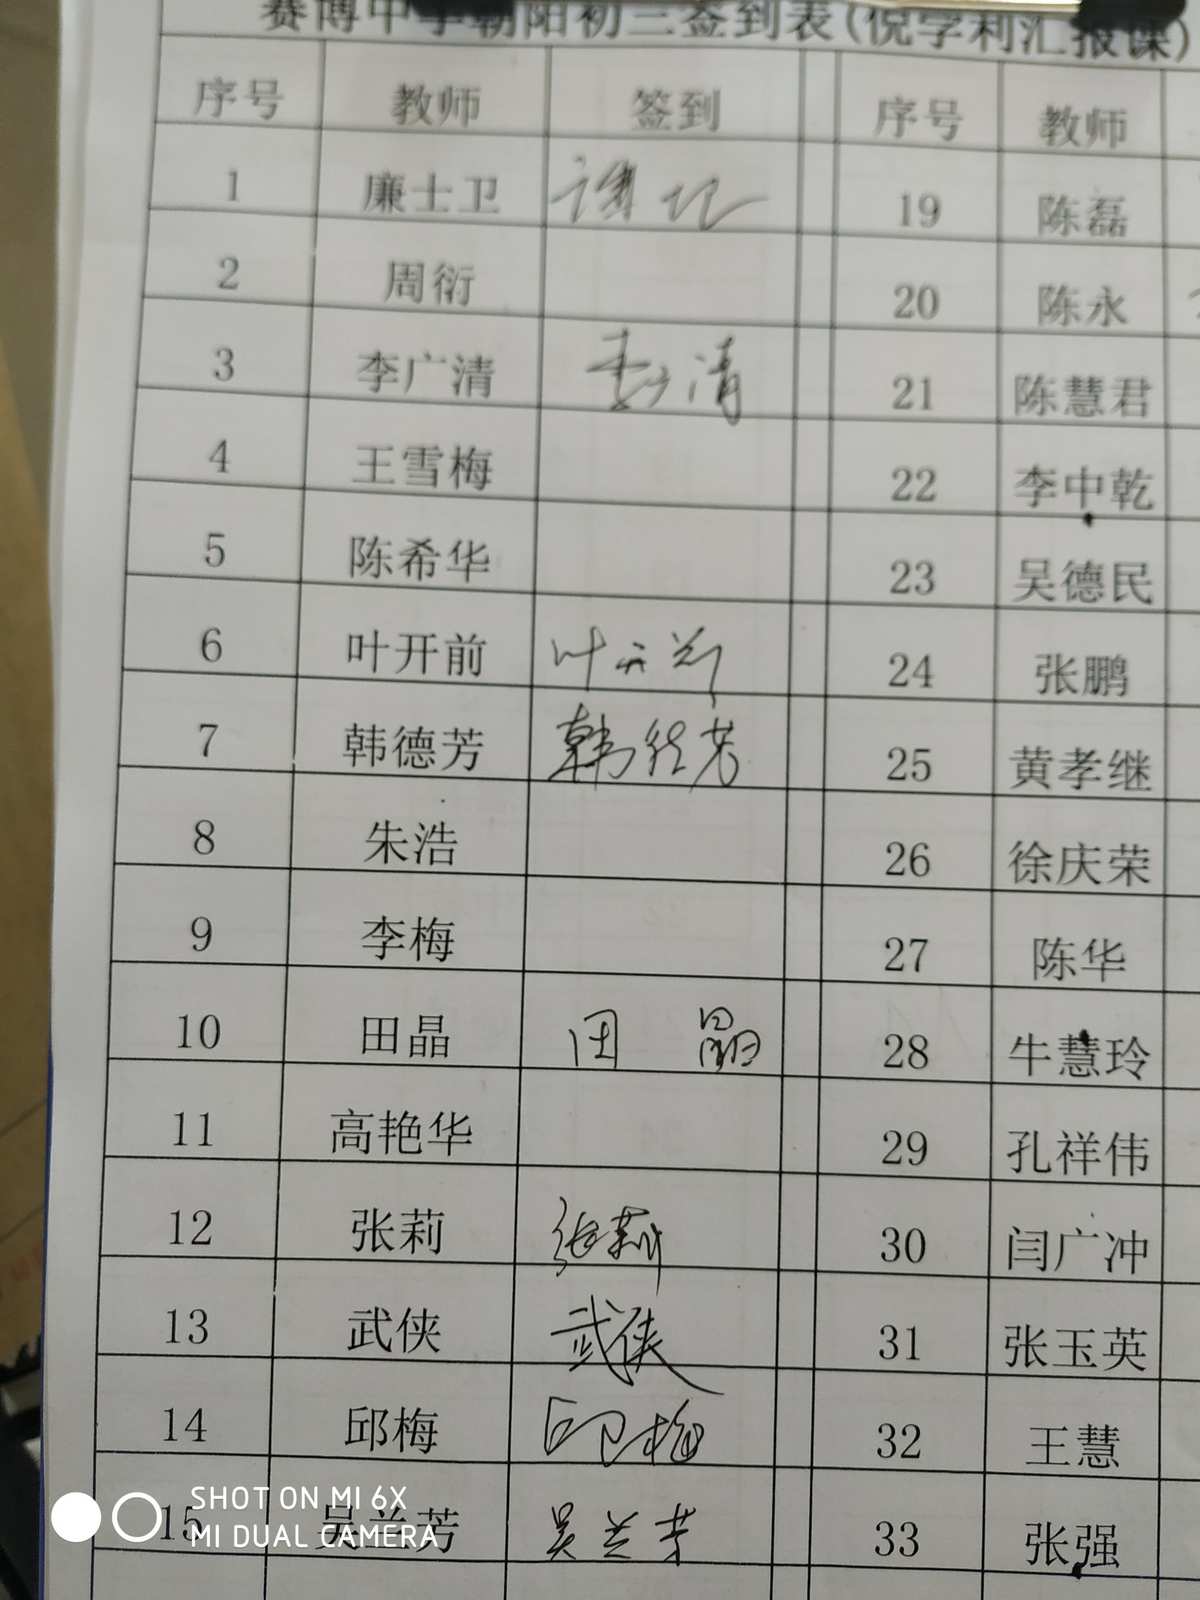 赛博中学朝阳初三签到表(倪学利汇报课)
序号 教师 签到 序号 教师
1 廉士卫 19 陈磊
2 周衍 20 陈永
3 李广清 李广清 21 陈慧君
4 王雪梅 22 李中乾
5 陈希华 23 吴德民
6 叶开前 叶开前 24 张鹏
7 韩德芳 韩德芳 25 黄孝继
8 朱浩 26 徐庆荣
9 李梅 27 陈华
10 田晶 田晶 28 牛慧玲
11 高艳华 29 孔祥伟
12 张莉 张莉 30 闫广冲
13 武侠 武侠 31 张玉英
14 邱梅 邱梅 32 王慧
15 吴兰芳 吴兰芳 33 张强
SHOT ON MI 6X
MI DUAL CAMERA